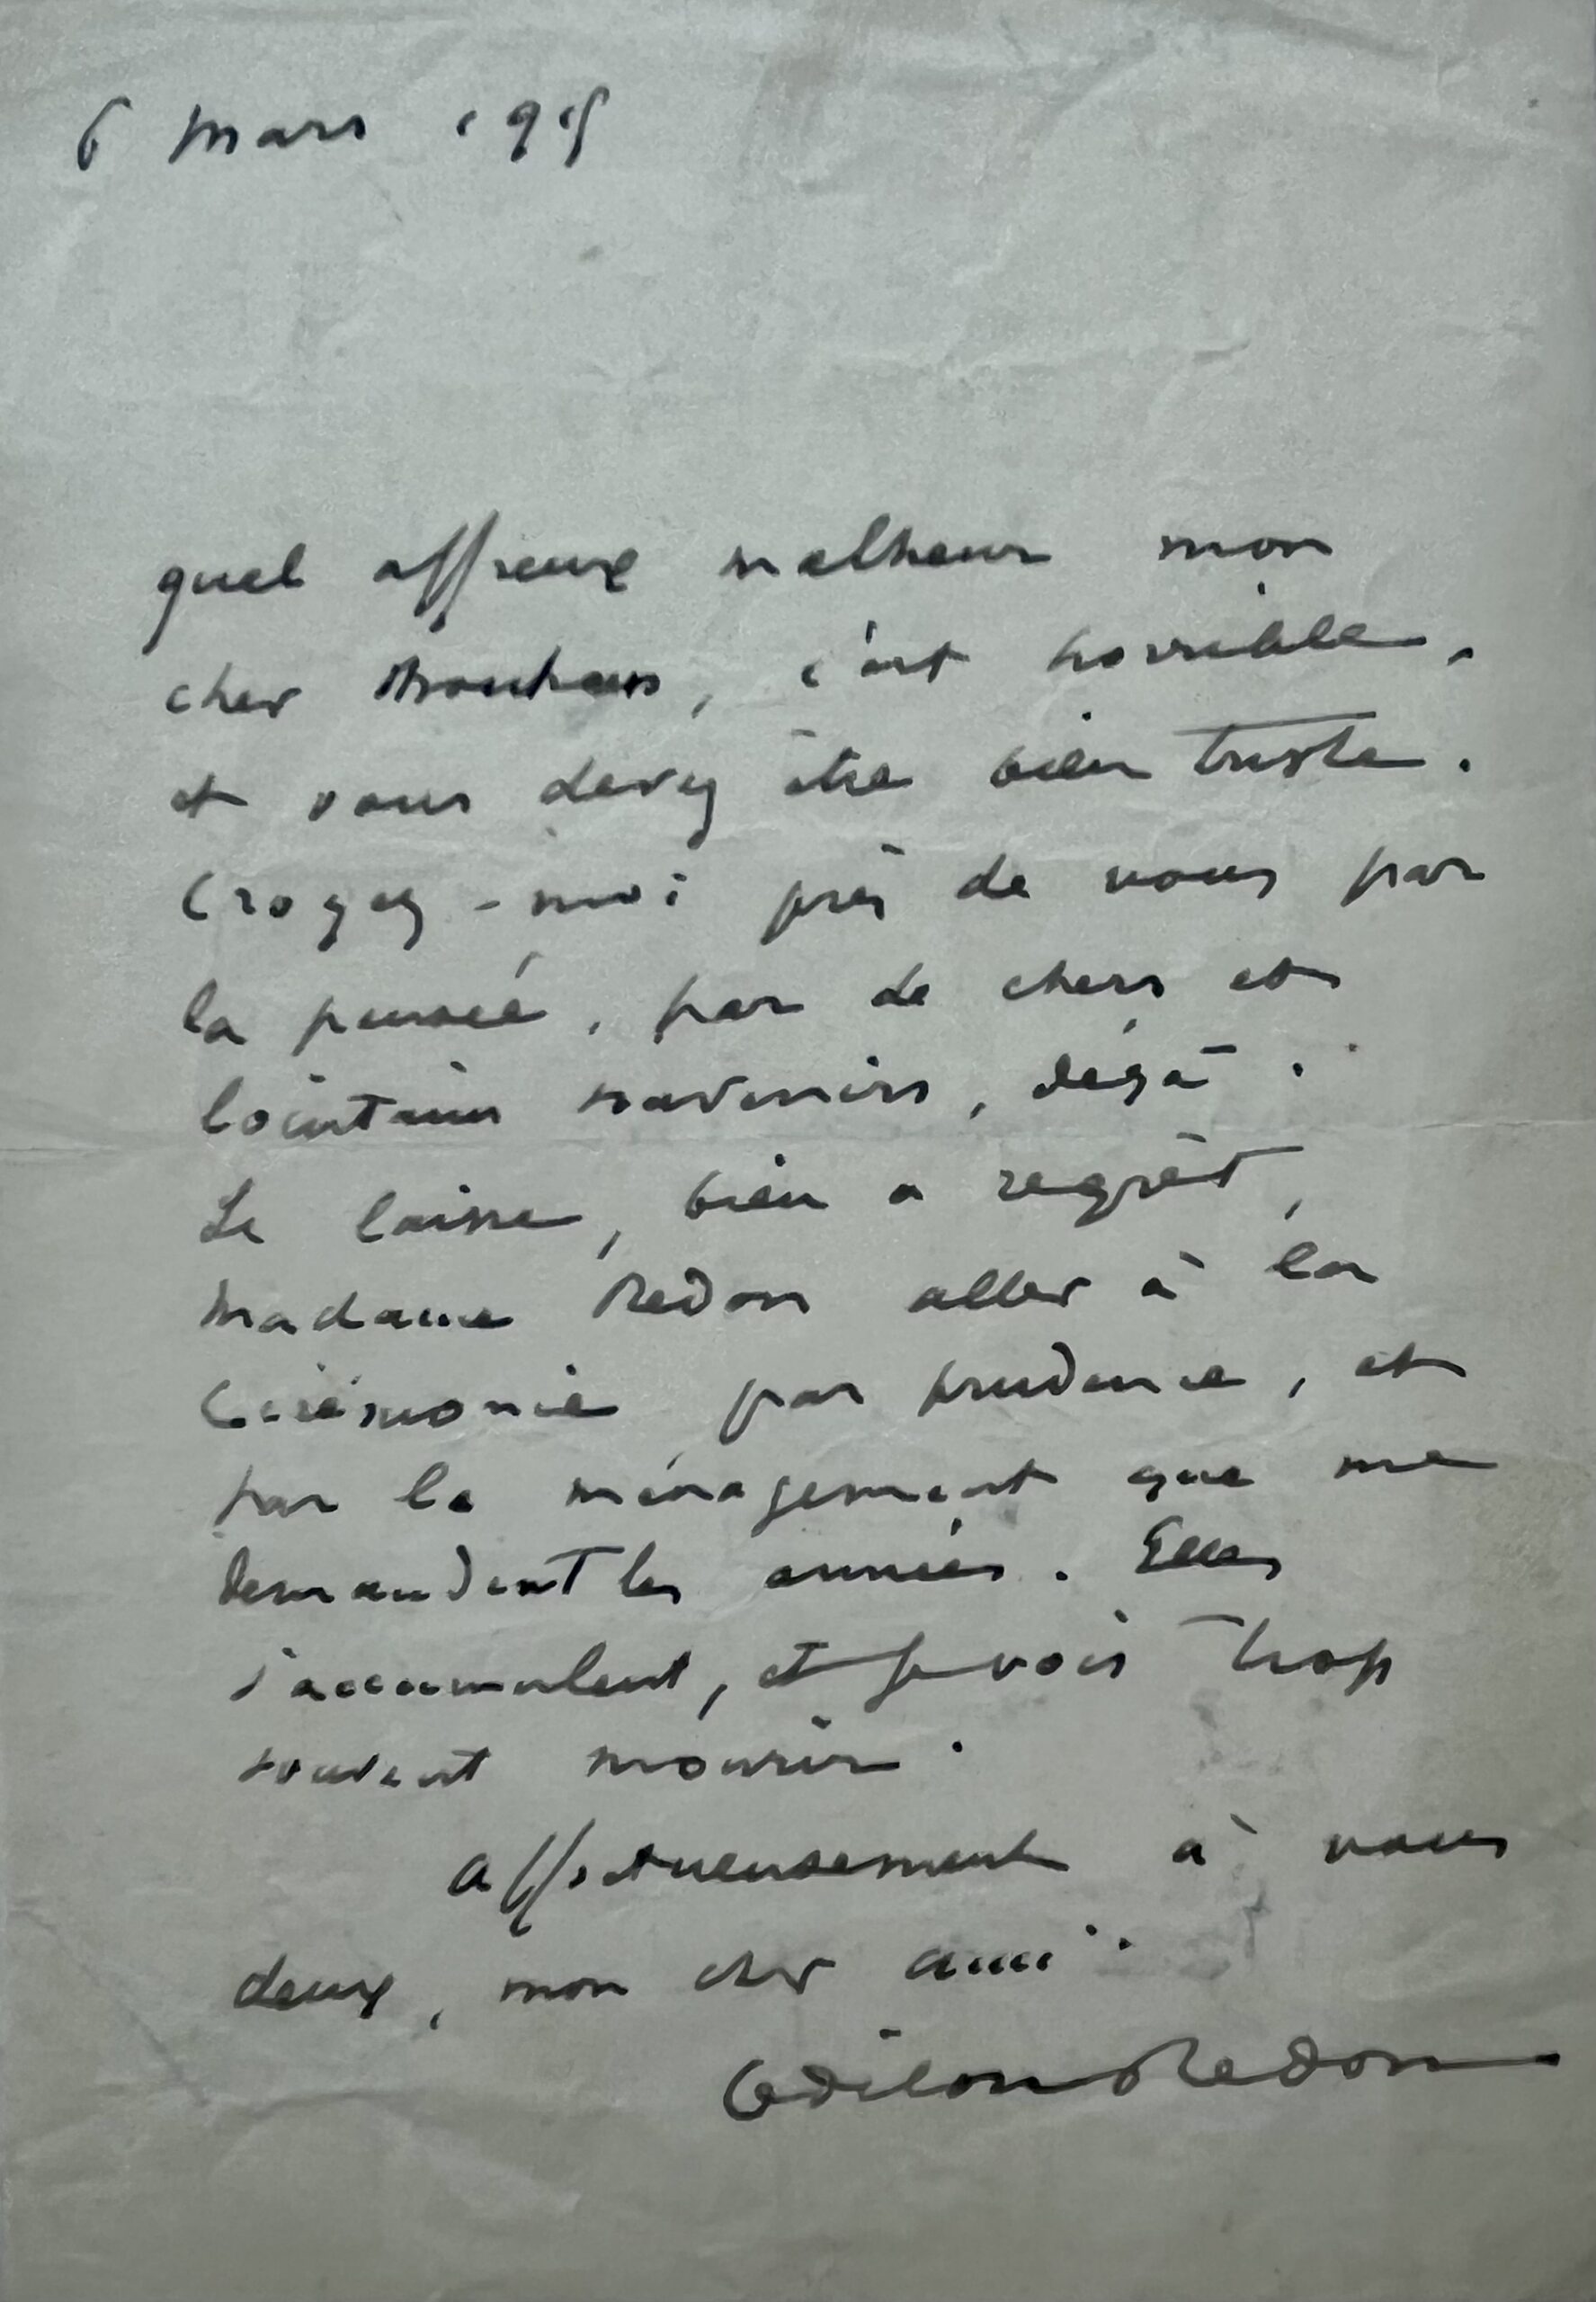 6 mars 1915
quel affreux malheur mon
cher, c'est horrible,
et vous devez être bien triste.
Croyez-moi près de vous par
la pensée, par de chers et
lointains souvenirs, déjà.
Je laisse, bien a regrèt,
Madame Redon aller à la
Cérémonie par prudence, et
par le ménagement que me
demandent les années. Elles
s'accumulent, et je vois trop
souvent mourir.
affectueusement à vous
deux, mon cher ami.
Odilon Redon